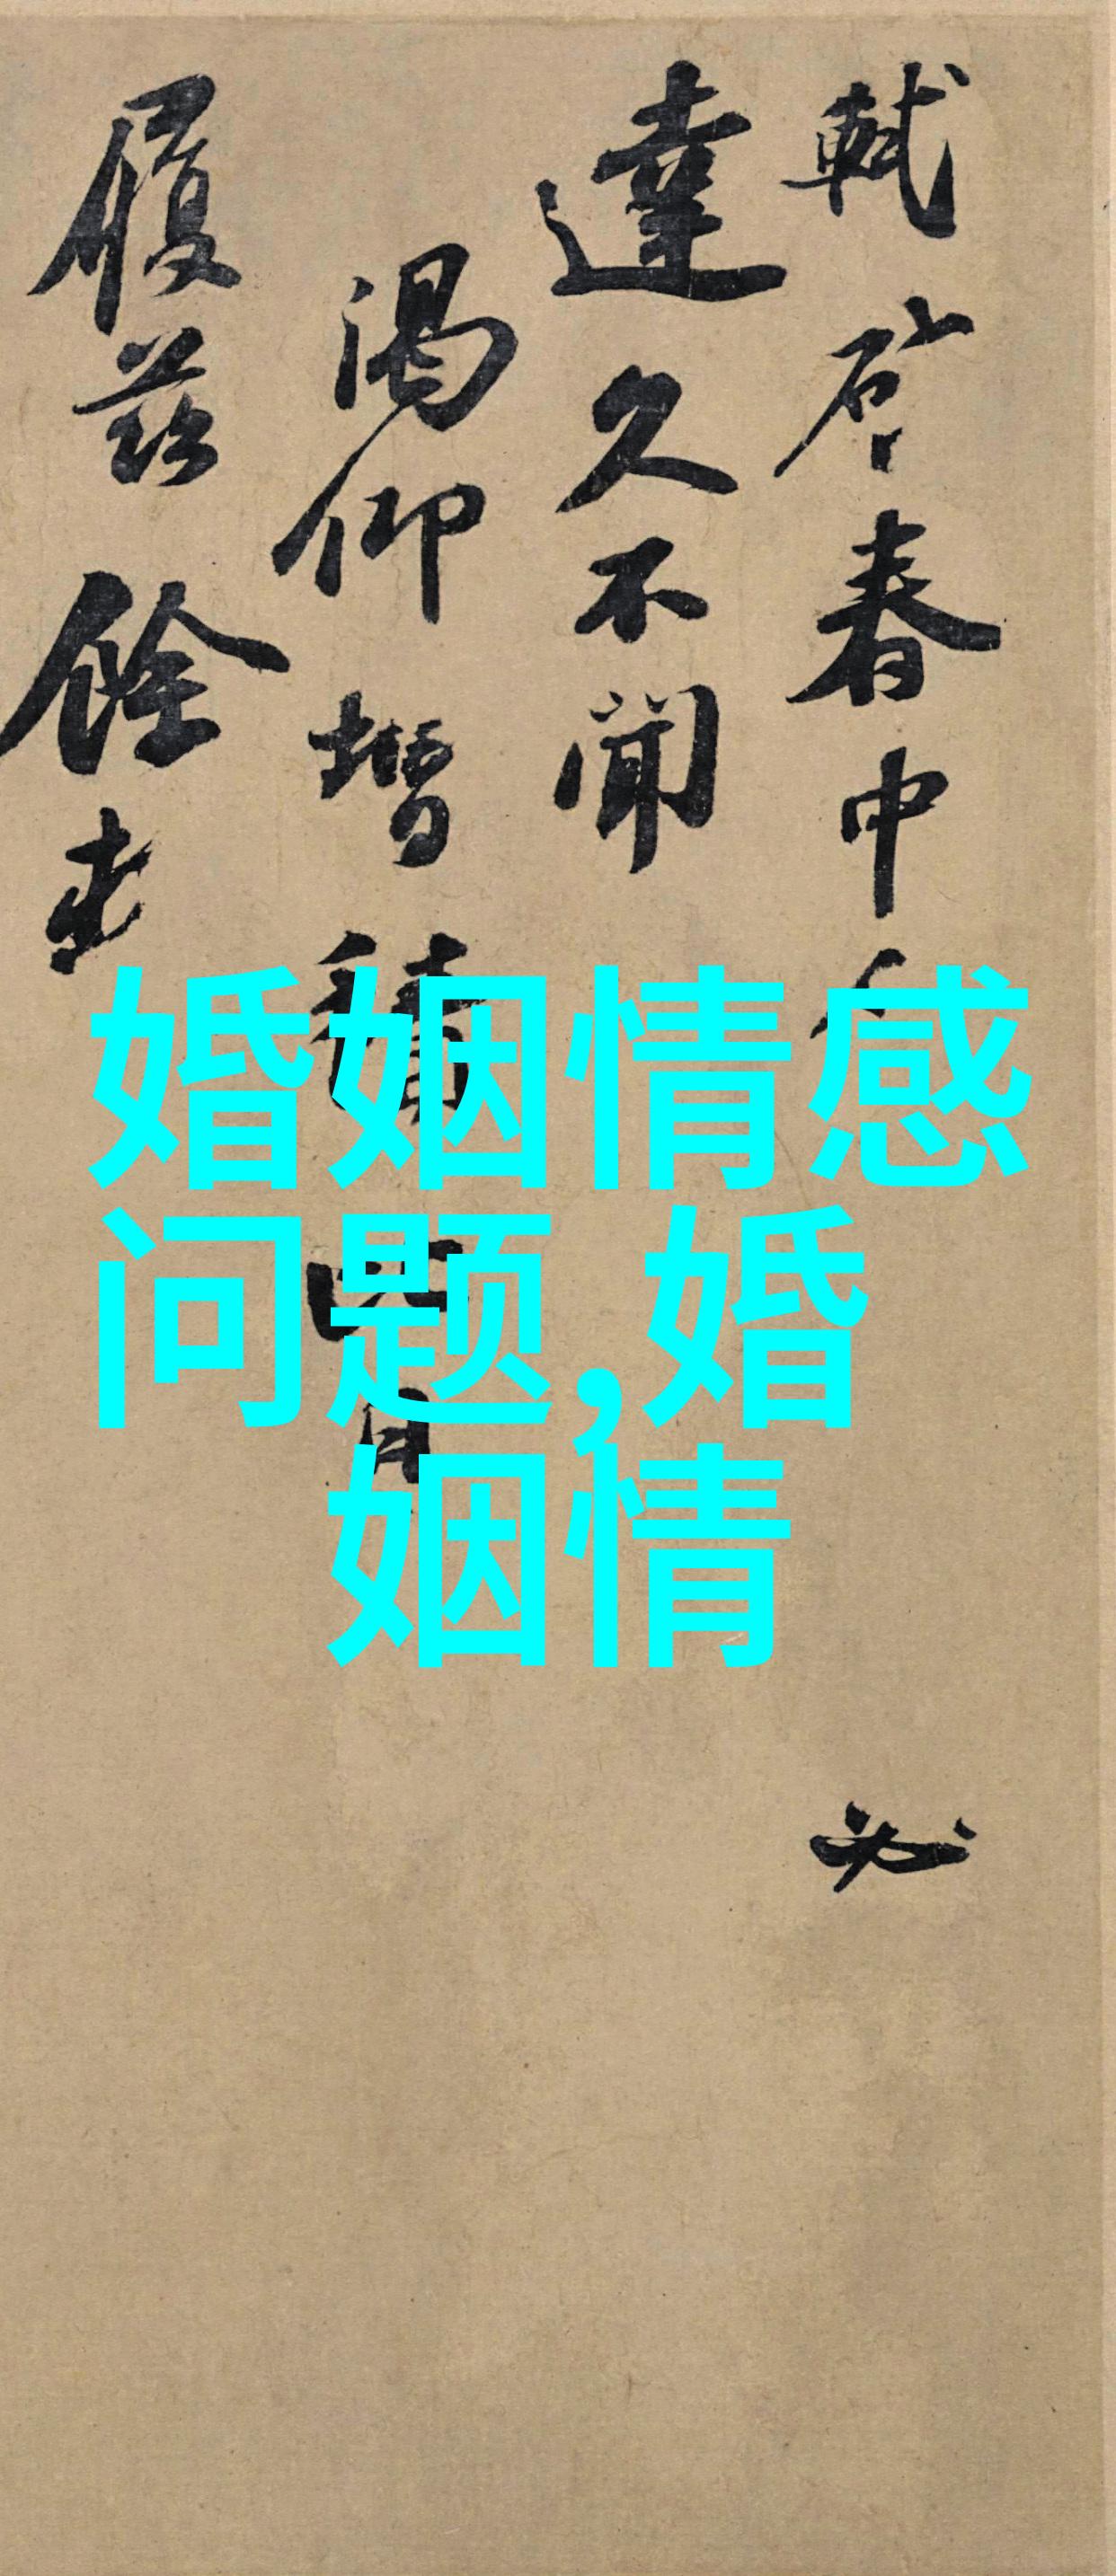 軾啓春中
達久不聞
渴仰增積
履茲餘
婚姻情感
问题,婚
姻情